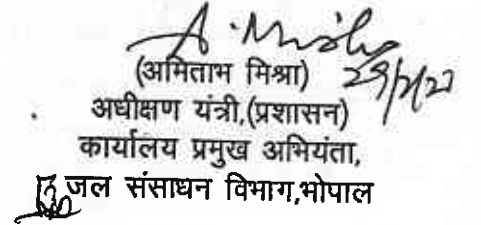 A. Mishra
(अमिताभ मिश्रा)
अधीक्षण यंत्री,(प्रशासन)
कार्यालय प्रमुख अभियंता,
जल संसाधन विभाग,भोपाल